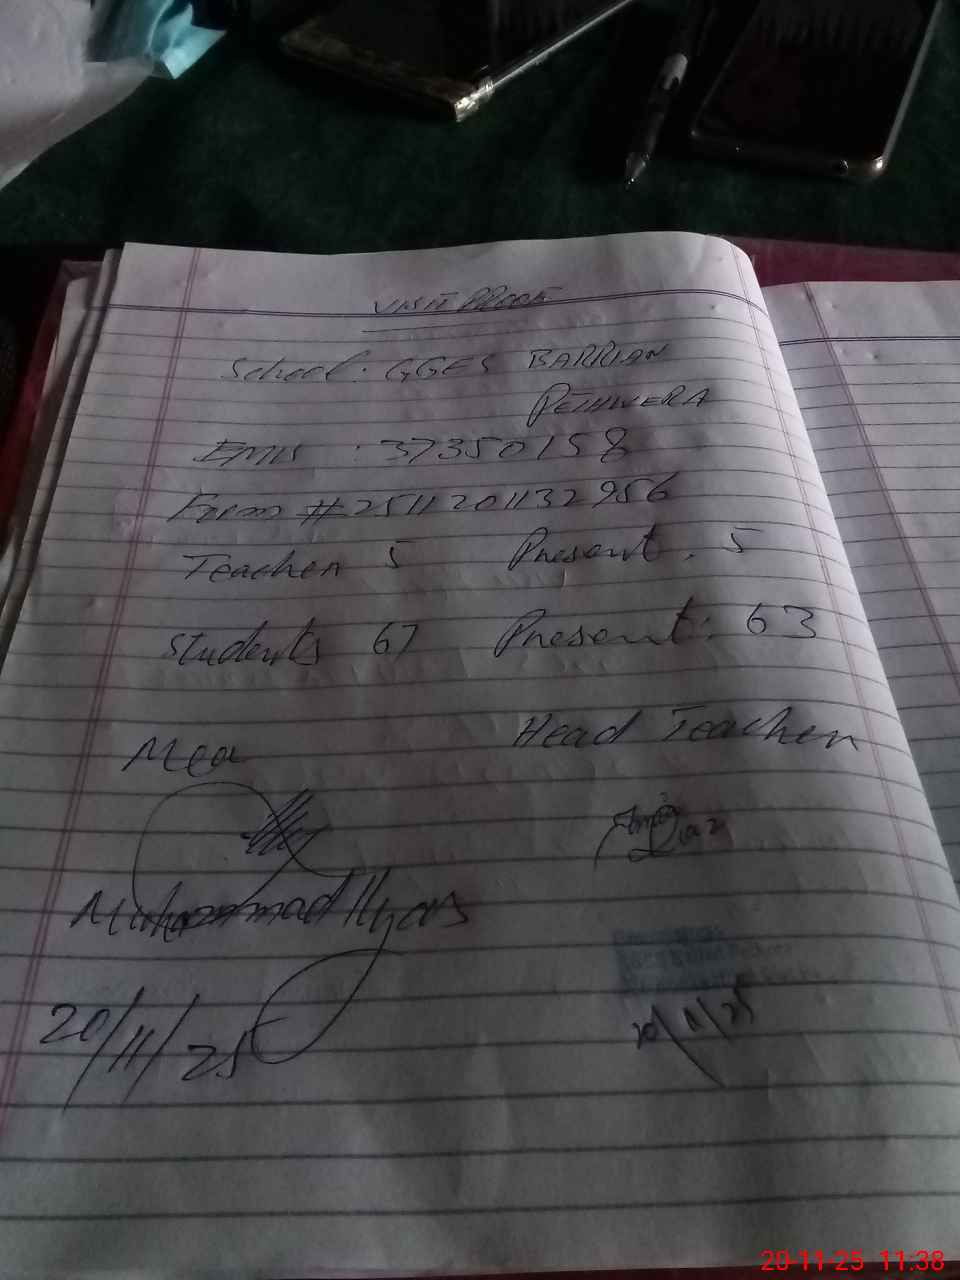 VISIT PROOF
School: GGES BARRIAN
PETHWERA
EMIS : 37350158
Form # 2511201132956
Teacher 5 Present. 5
Students 67 Present: 63
Mea Head Teacher
Muhammad Ilyas
20/11/25 20/11/25
20-11-25 11:38